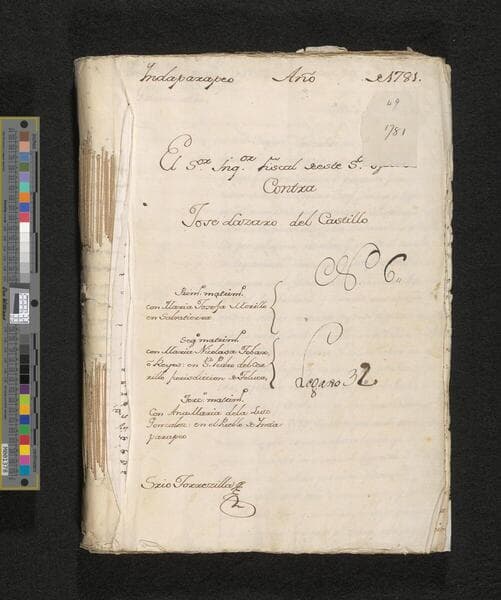 Indaparapeo Año de 1781.
49
1781
El Sor. Inqor. Fiscal deste Sto.
Contra
Jose Lazaro del Castillo
No. 6.
Prim. matrim.
con Maria Josefa Morillo
en Salvatierra
Segdo matrim.
con Maria Nicolasa Tobar,
ó Reyes: en Sn. Pedro del
jurisdiccion de Toluca,
Legajo 32
Terc. matrim.
Con Ana Maria de la Luz
Gonzalez: en el Pueblo de Inda
parapeo
Srio Torrezilla